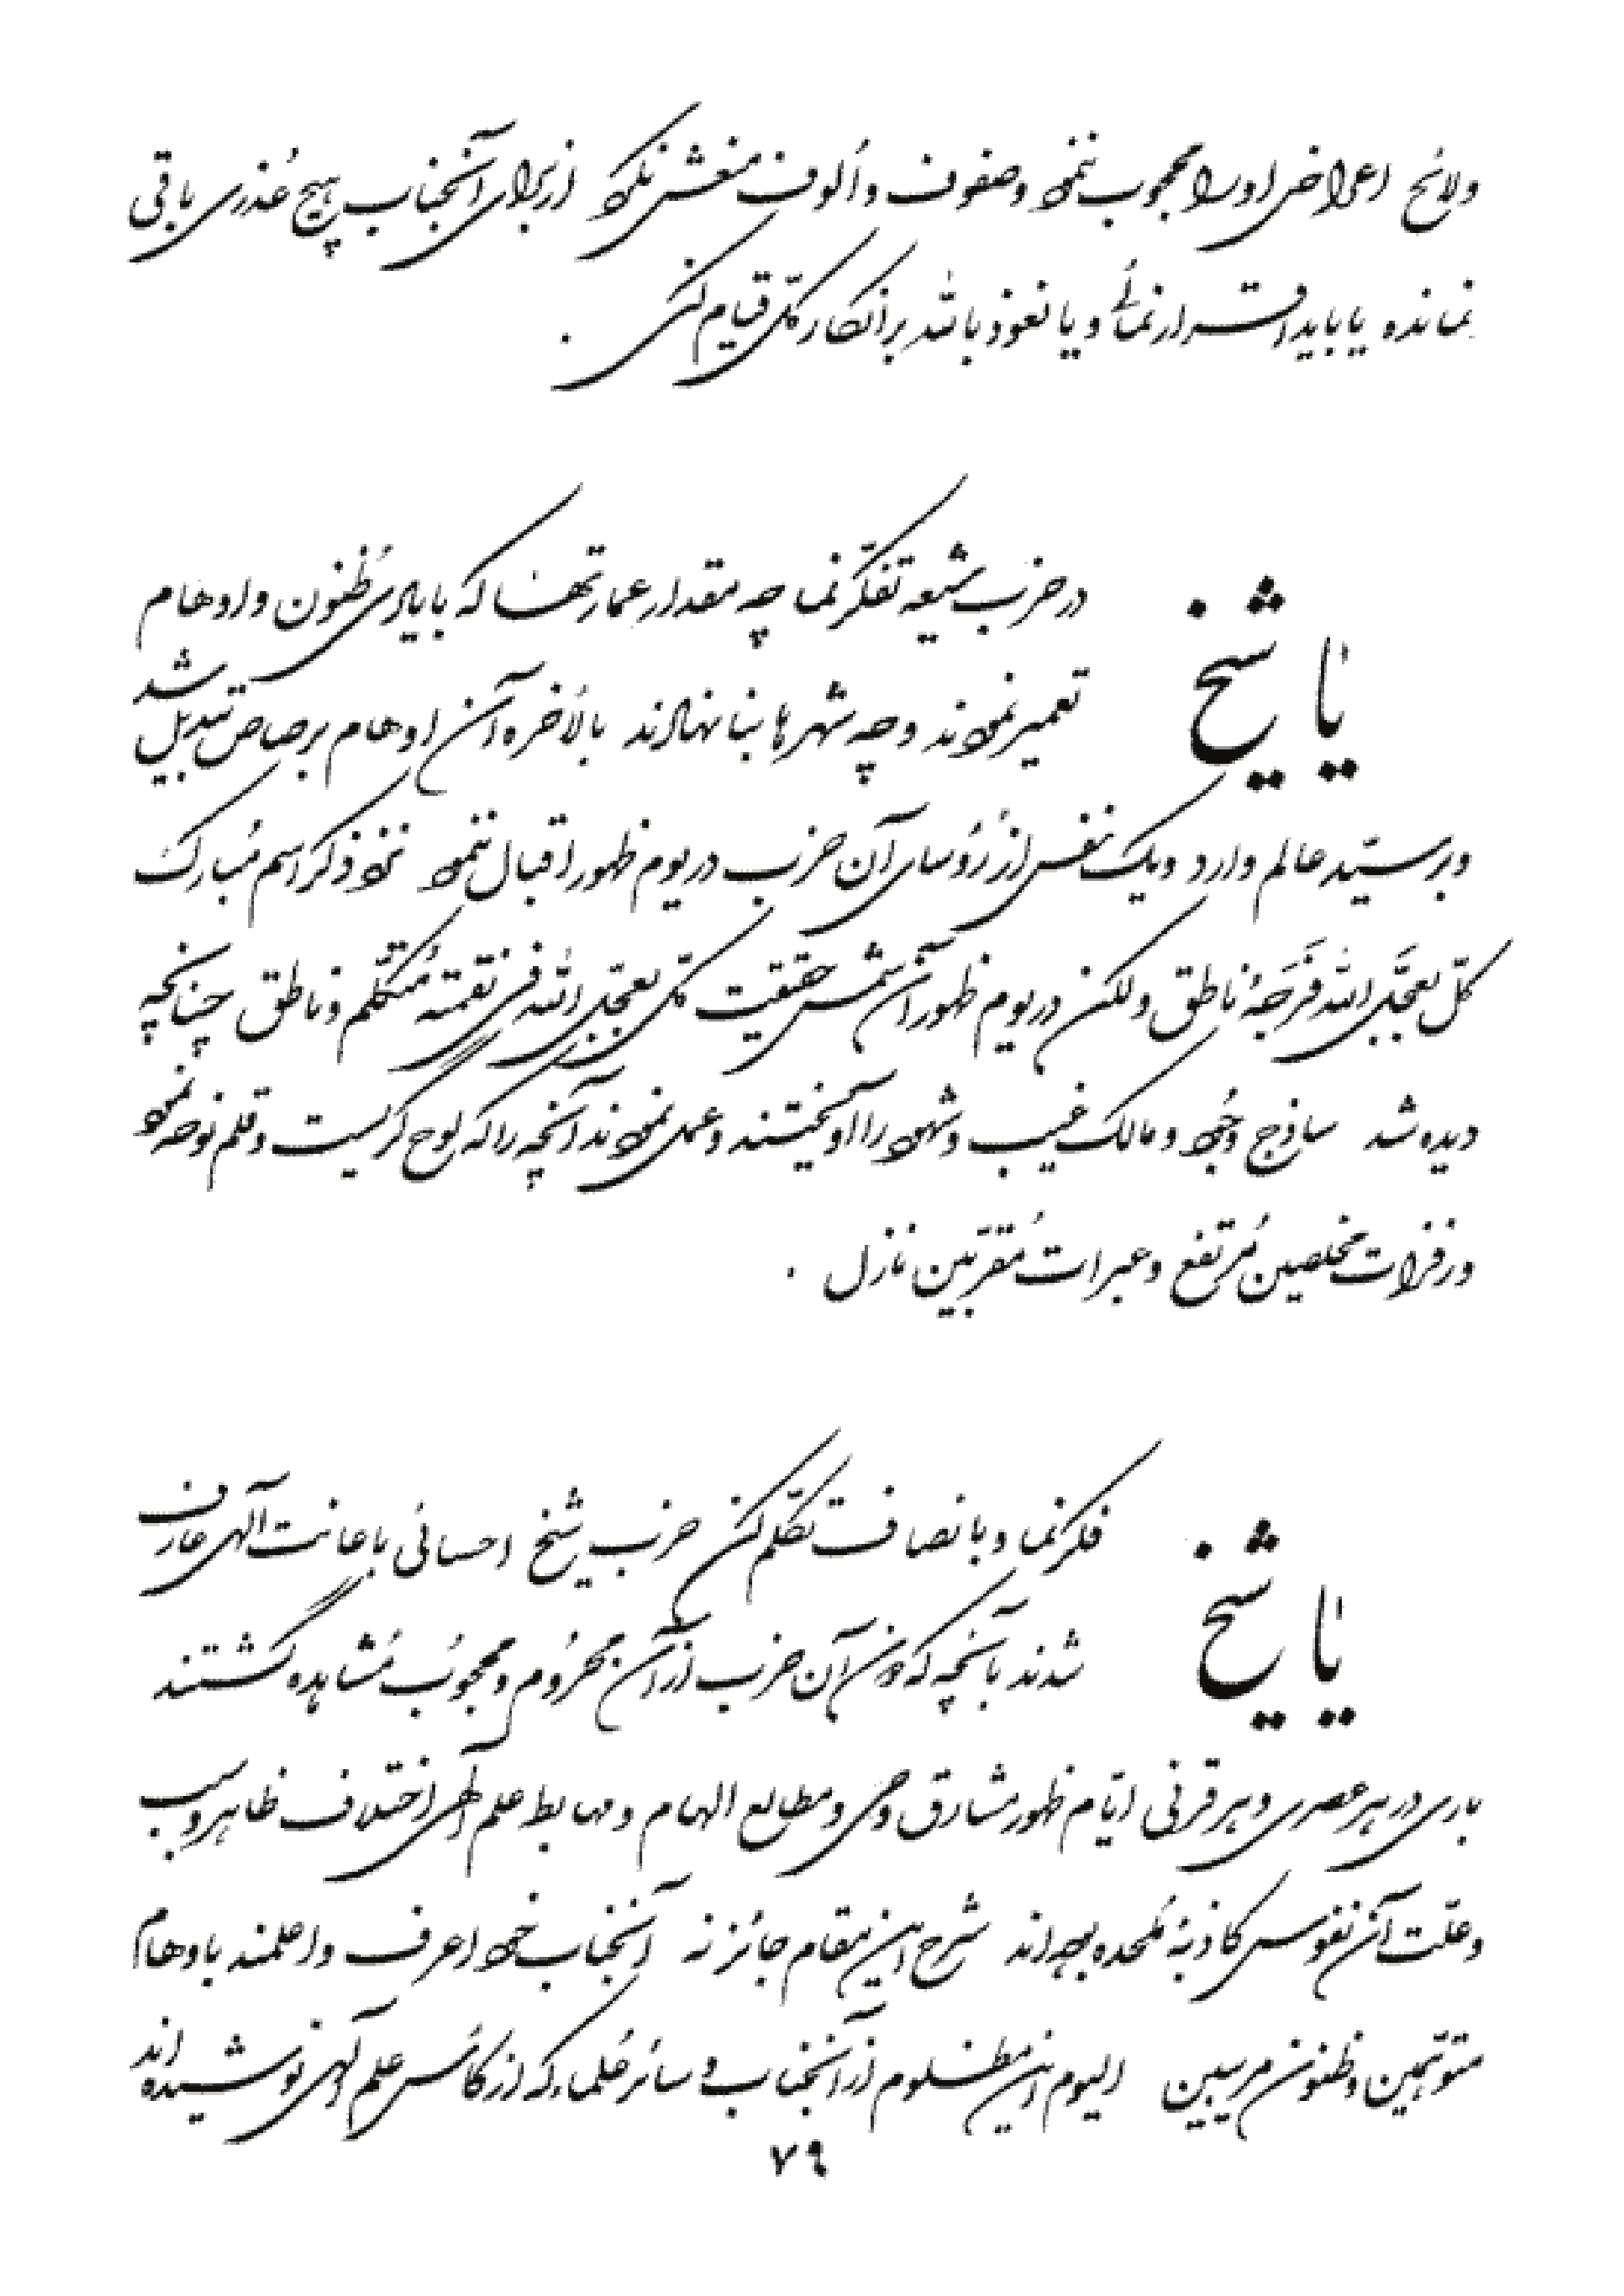 ولائح اعراض او را محجوب ننمود و صفوف و اُلوف منعش نکرد از برای آنجناب هیچ عُذری باقی
نمانده یا باید اقرار نمائی و یا نعوذ بالله بر انکار کلّ قیام کنی .
یا شیخ
در حزب شیعه تفکّر نما چه مقدار عمارتها که بایادی ظُنون و اوهام
تعمیر نمودند و چه شهرها بنا نهادند بالاُخره آن اوهام برصاص تبدیل شد
و بر سیّد عالم وارد و یک نفس از رُؤسای آن حزب در یوم ظهور اقبال ننمود نزد ذکر اسم مُبارک
کلّ بعَجَّل الله فَرَجَهُ ناطق ولکن در یوم ظهور آن شمس حقیقت کلّ بعجّل الله فی نقمته مُتکلّم و ناطق چنانچه
دیده شد ساذج وجود و مالک غیب و شهود را آویختند و عمل نمودند آنچه را که لوح گریست و قلم نوحه نمود
و زفرات مخلصین مُرتفع و عبرات مُقرّبین نازل .
یا شیخ
فکر نما و بانصاف تکلّم کن حزب شیخ احسائی باعانت آلهی عارف
شدند بآنچه که دون آن حزب از آن محرُوم و محجوبُ مُشاهده گشتند
باری در هر عصری و هر قرنی ایّام ظهور مشارق وحی و مطالع الهام و مهابط علم الهی اختلاف ظاهر و سبب
و علّت آن نفوس کاذبهٔ مُلحده بوده‌اند شرح این مقام جائز نه آنجناب خود اعرف و اعلمند باوهام
متوهّمین و ظنون مریبین الیوم این مظلوم از آنجناب و سائر عُلماء که از کأس علم آلهی نوشیده‌اند
٧٩